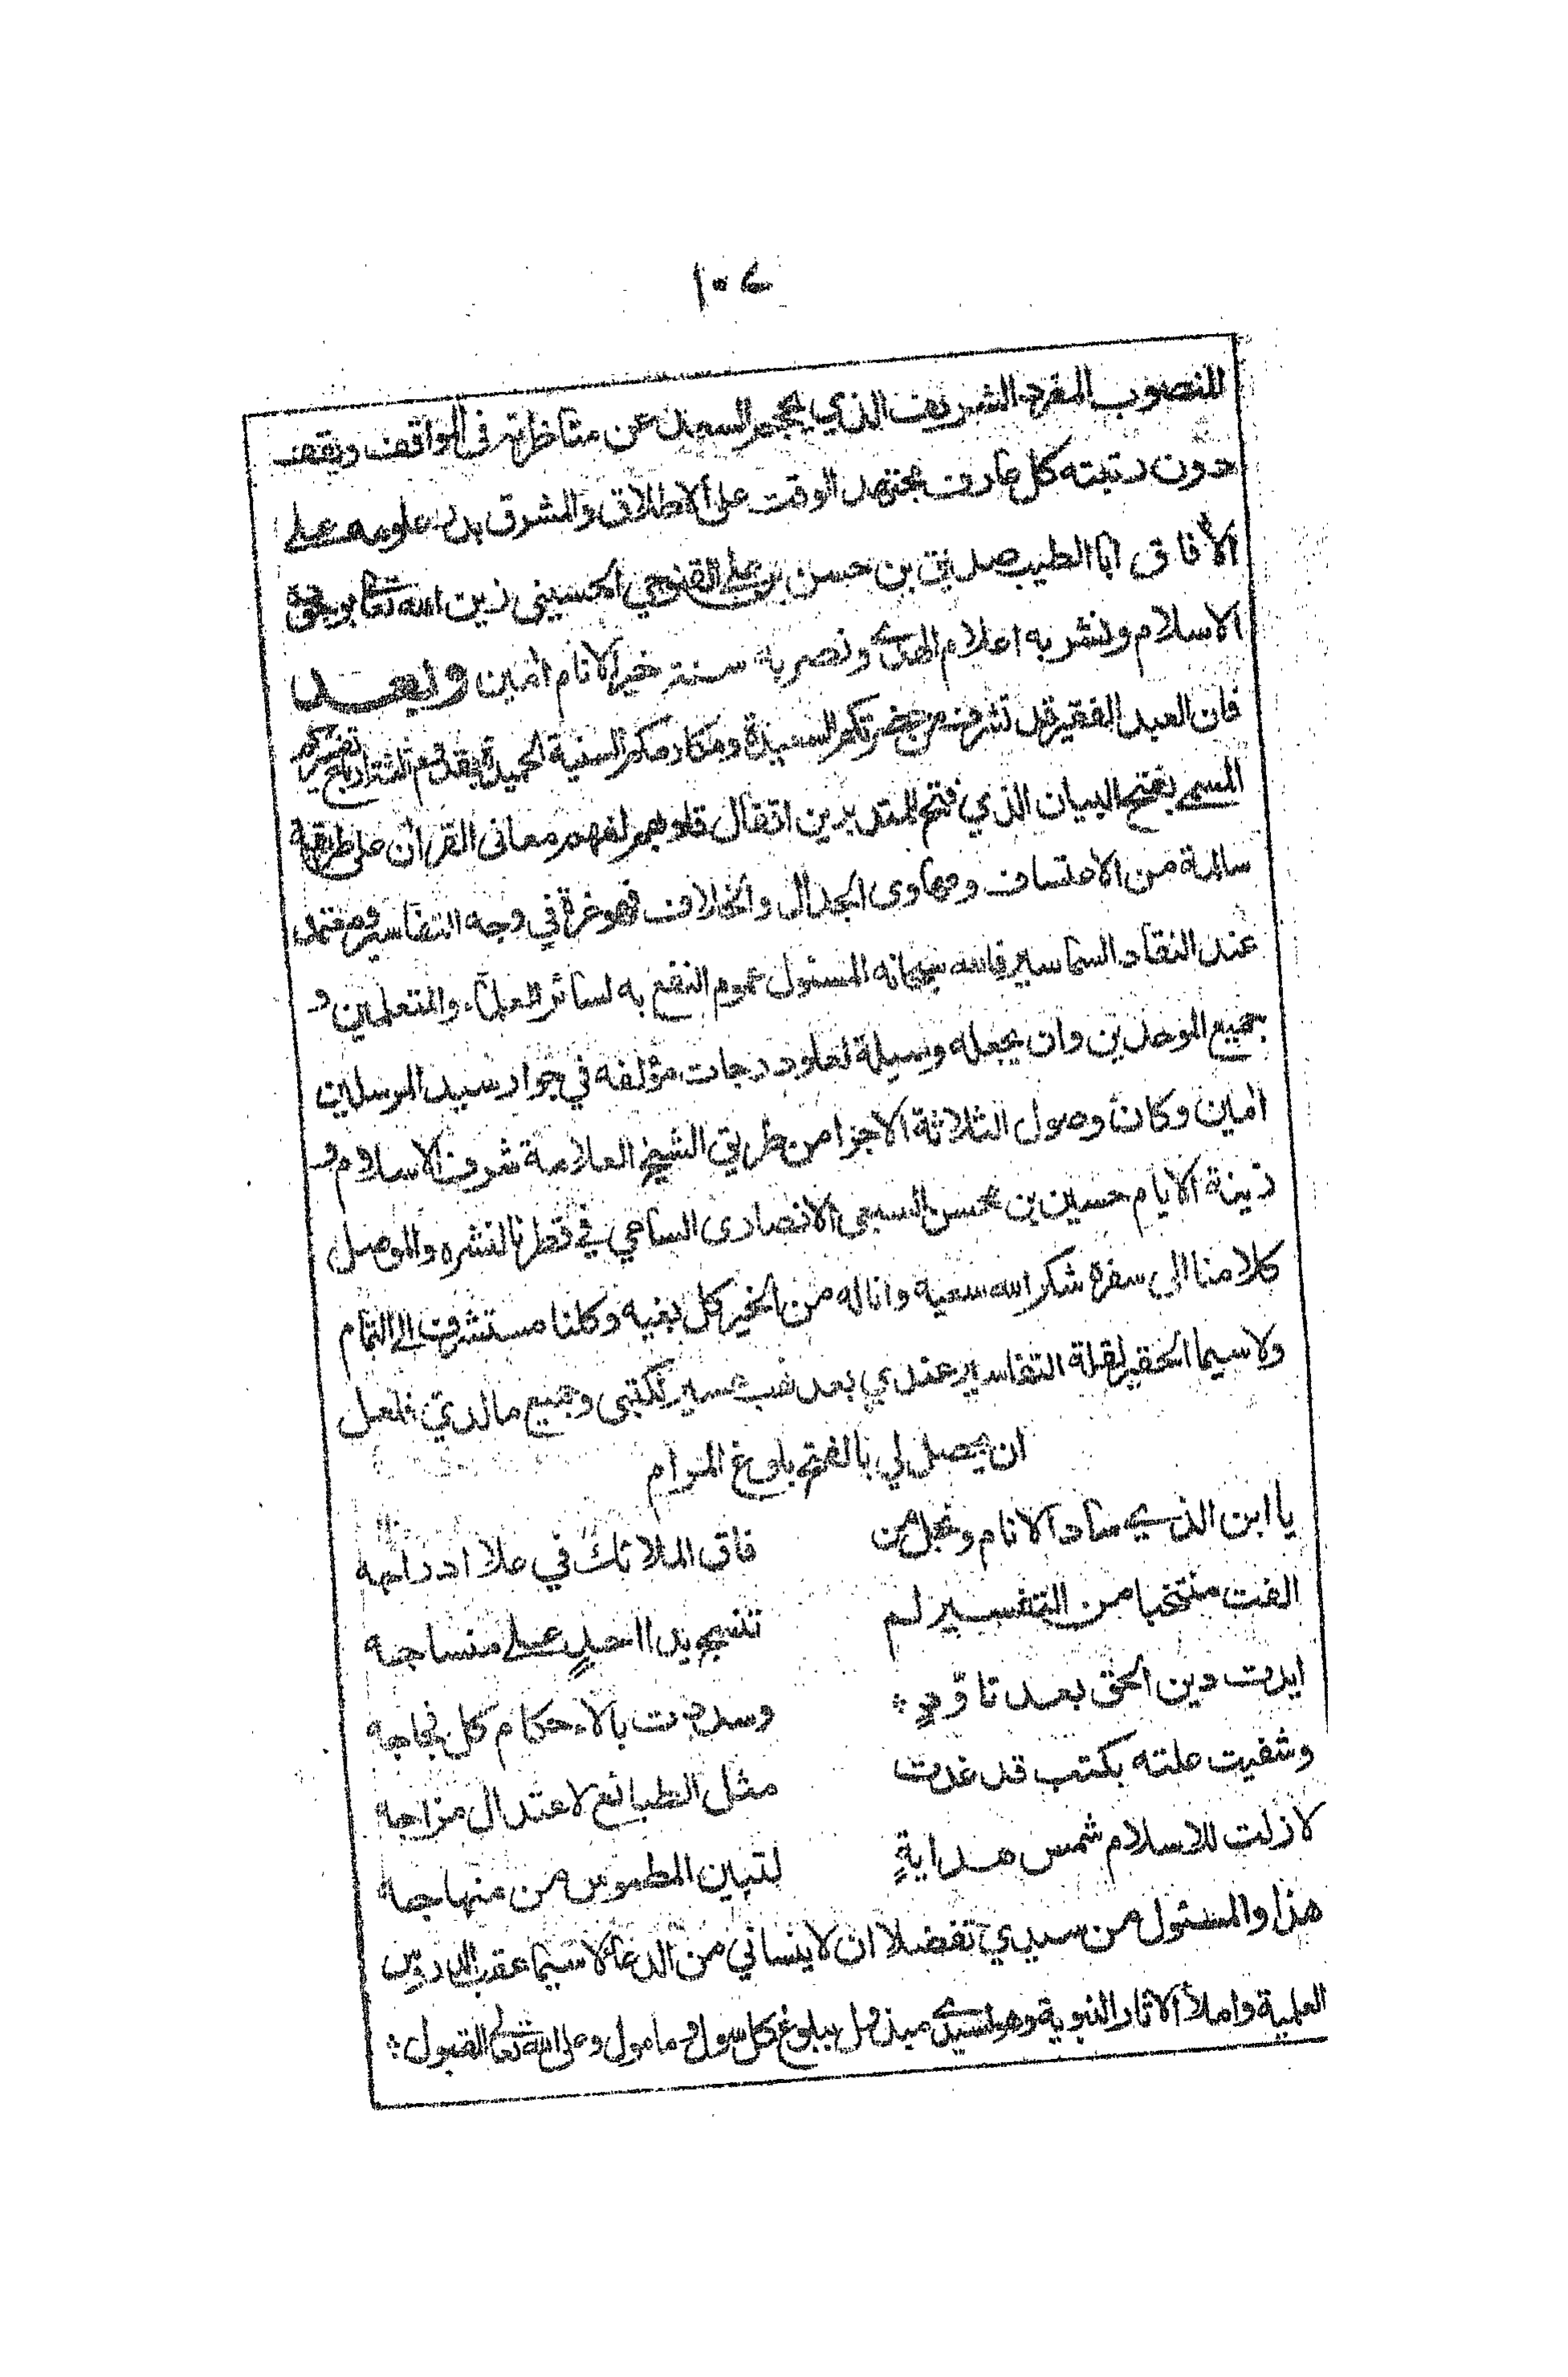 ١٠٧
المنصوب المفرد الشريف الذي يحجم السعد عن مناظرته في المواقف ويقف
دون رتبته كل عارف مجتهد الوقت على الاطلاق والمشرق بدر علومه على
الأفاق ابا الطيب صديق بن حسن بن علي القنوجي الحسيني زين الله تعالى به
الاسلام ونشر به اعلام الهدى ونصر به سنة خير الانام امين وبعد
فان العبد الفقير قد تشرف من حضرتكم السعيدة ومكارمكم السنية الحميدة بقدوم تفسيركم
المسمى بفتح البيان الذي فتح للمتدبرين اقفال قلوبهم لفهم معاني القرأن على طريقة
سالمة من الاعتساف ومهاوى الجدال والخلاف فهو غرة في وجه التفاسير ومعتمد
عند النقاد السماسير فالله سبحانه المسئول عموم النفع به لسائر العلماء والمتعلمين و
جميع الموحدين وان يجعله وسيلة لعلو درجات مؤلفه في جوار سيد المرسلين
امين وكان وصول الثلاثة الاجزا من طريق الشيخ العلامة شرف الاسلام و
زينة الايام حسين بن محسن السبعي الانصاري الساعي في قطرنا لنشره والموصل
كلامنا الى سفره شكر الله سعيه واناله من الخير كل بغيه وكلنا مستشرف الى التمام
ولا سيما الحقير لقلة التفاسير عندي بعد نهب عسير لكتبي وجميع ما لدي فلعل
ان يحصل لي بالفتح بلوغ المرام
يا ابن الذي ساد الانام ونجل من فاق الملائك في علا ادراجه
الفت منتخبا من التفسير لم تنسج يدا احدٍ على منساجه
ايدت دين الحق بعد تاوّدٍ وسددت بالاحكام كل فجاجه
وشفيت علته بكتب قد غدت مثل الطبائع لاعتدال مزاجه
لا زلت للاسلام شمس هدايةٍ لتبين المطموس من منهاجه
هذا والمسئول من سيدي تفضلا ان لا ينساني من الدعاء لا سيما عقب الدروس
العلمية واملاء الاثار النبوية وهو لسيدي مبذول ببلوغ كل سول ومامول وعلى الله تعالى القبول